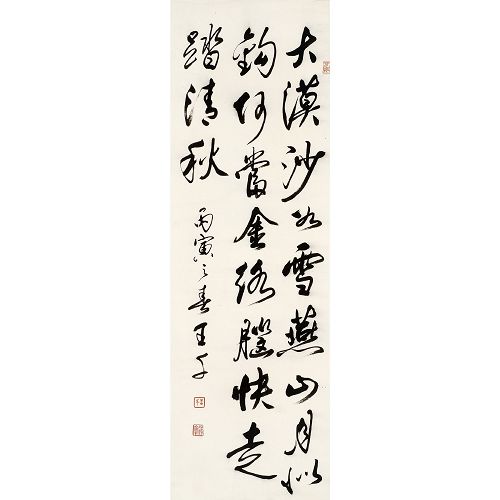 大漠沙如雪燕山月似
鉤何當金絡腦快走
踏清秋
丙寅之春王子